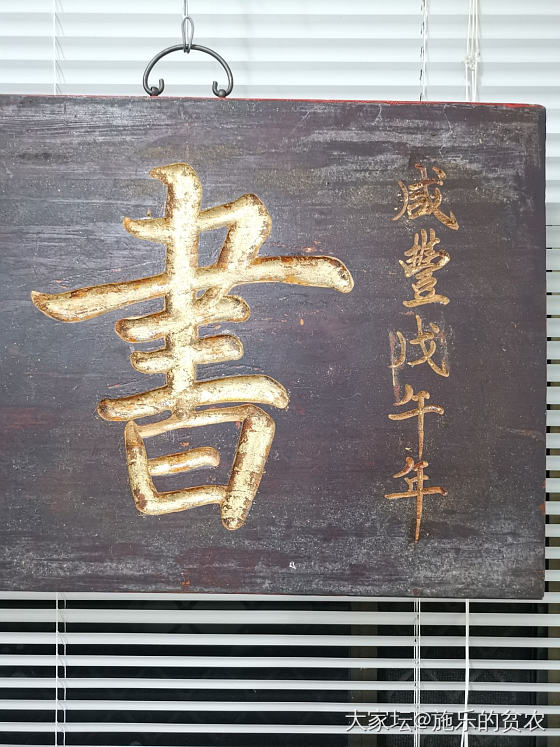 咸豐戊午年
書
大家坛@施乐的贫农